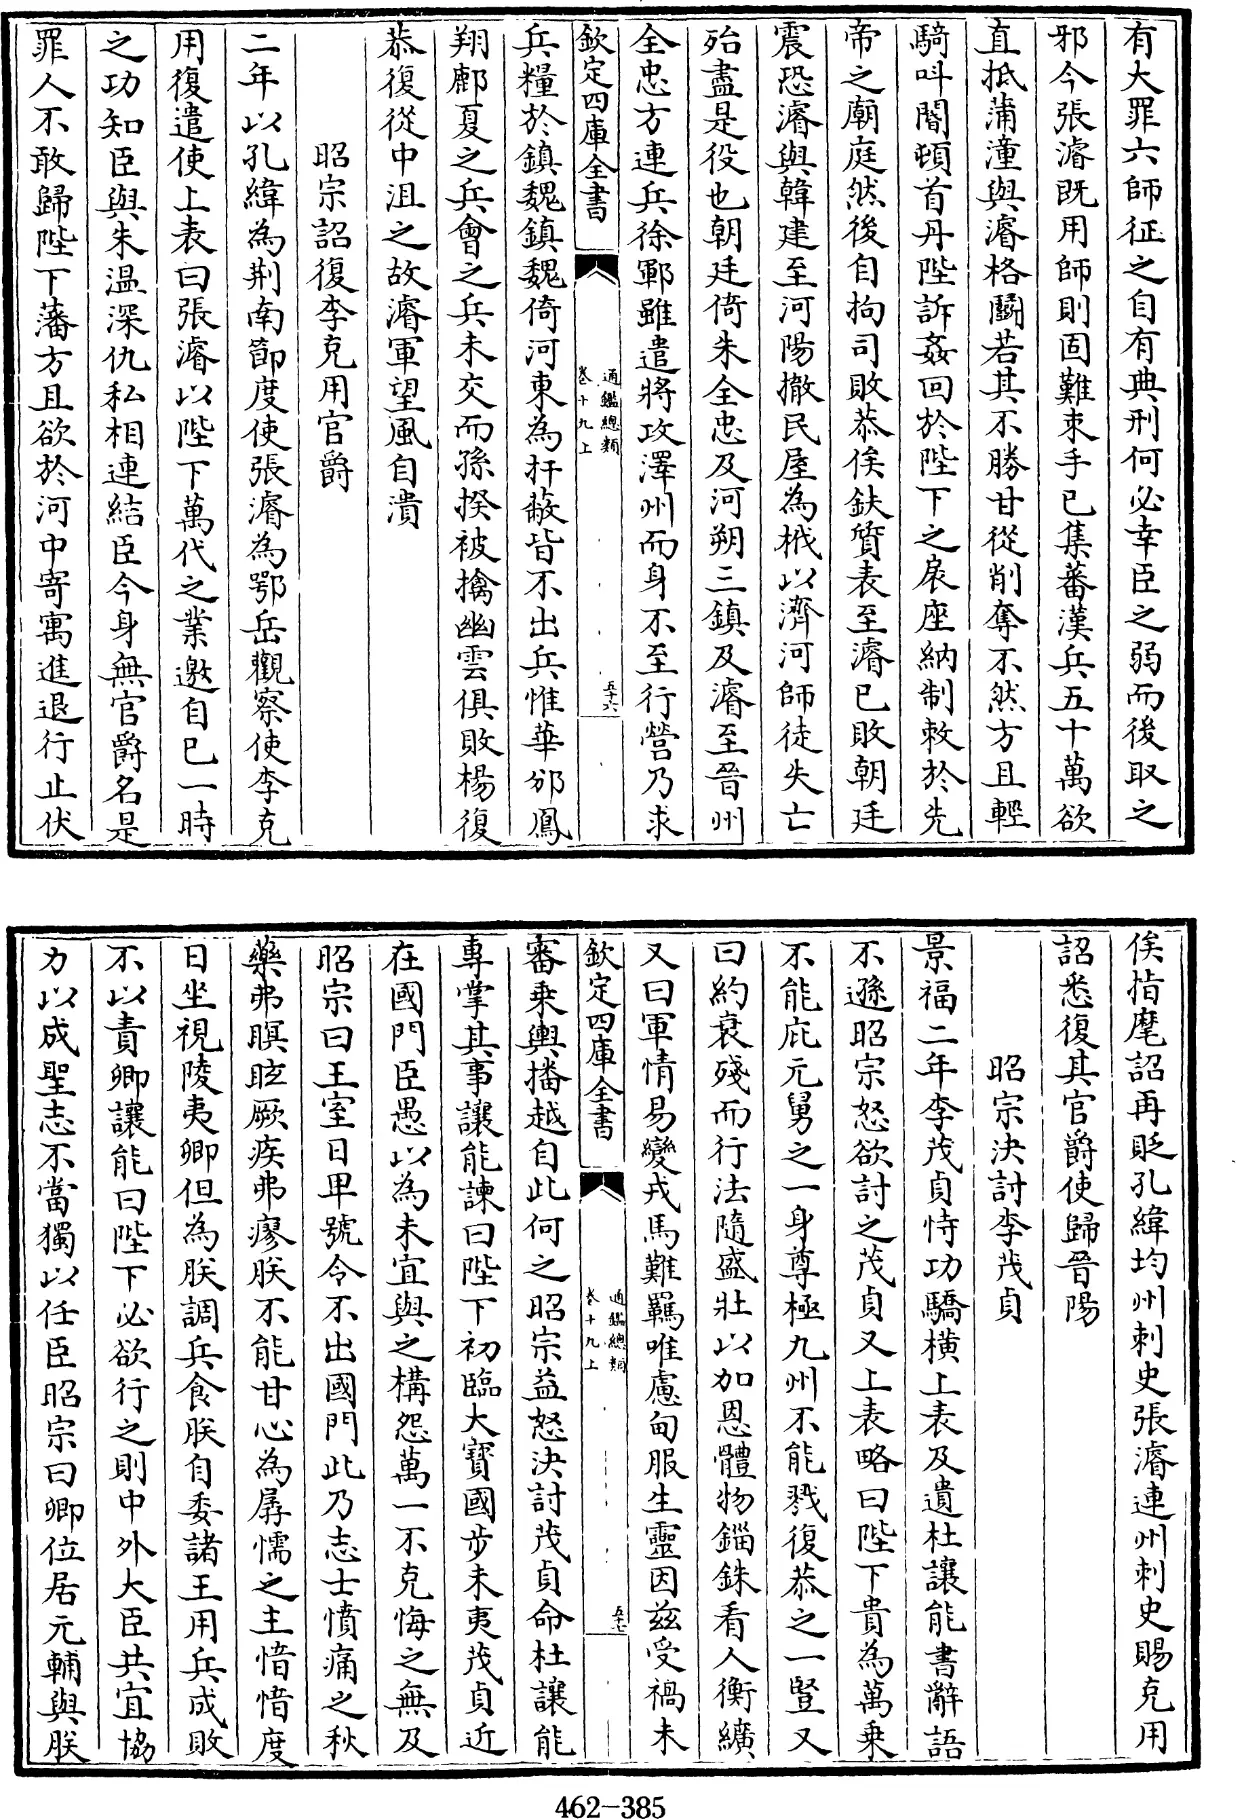 有大罪六師征之自有典刑何必幸臣之弱而後取之
邪今張濬既用師則固難束手已集蕃漢兵五十萬欲
直抵蒲潼與濬格鬬若其不勝甘從削奪不然方且輕
騎叫閽頓首丹陛訴姦回於陛下之扆座納制敕於先
帝之廟庭然後自拘司敗恭俟鈇質表至濬已敗朝廷
震恐濬與韓建至河陽撤民屋為栰以濟河師徒失亡
殆盡是役也朝廷倚朱全忠及河朔三鎮及濬至晉州
全忠方連兵徐鄆雖遣將攻澤州而身不至行營乃求
欽定四庫全書
通鑑總類
卷十九上
五十六
兵糧於鎮魏鎮魏倚河東為扞蔽皆不出兵惟華邠鳳
翔鄜夏之兵會之兵未交而孫揆被擒幽雲俱敗楊復
恭復從中沮之故濬軍望風自潰
昭宗詔復李克用官爵
二年以孔緯為荆南節度使張濬為鄂岳觀察使李克
用復遣使上表曰張濬以陛下萬代之業邀自己一時
之功知臣與朱溫深仇私相連結臣今身無官爵名是
罪人不敢歸陛下藩方且欲於河中寄寓進退行止伏
俟指麾詔再貶孔緯均州刺史張濬連州刺史賜克用
詔悉復其官爵使歸晉陽
昭宗決討李茂貞
景福二年李茂貞恃功驕橫上表及遺杜讓能書辭語
不遜昭宗怒欲討之茂貞又上表略曰陛下貴為萬乘
不能庇元舅之一身尊極九州不能戮復恭之一豎又
曰約衰殘而行法隨盛壯以加恩體物錙銖看人衡纊
又曰軍情易變戎馬難羈唯慮甸服生靈因兹受禍未
欽定四庫全書
通鑑總類
卷十九上
五十七
審乘輿播越自此何之昭宗益怒決討茂貞命杜讓能
專掌其事讓能諫曰陛下初臨大寶國步未夷茂貞近
在國門臣愚以為未宜與之構怨萬一不克悔之無及
昭宗曰王室日卑號令不出國門此乃志士憤痛之秋
藥弗瞑眩厥疾弗瘳朕不能甘心為孱懦之主愔愔度
日坐視陵夷卿但為朕調兵食朕自委諸王用兵成敗
不以責卿讓能曰陛下必欲行之則中外大臣共宜協
力以成聖志不當獨以任臣昭宗曰卿位居元輔與朕
462-385